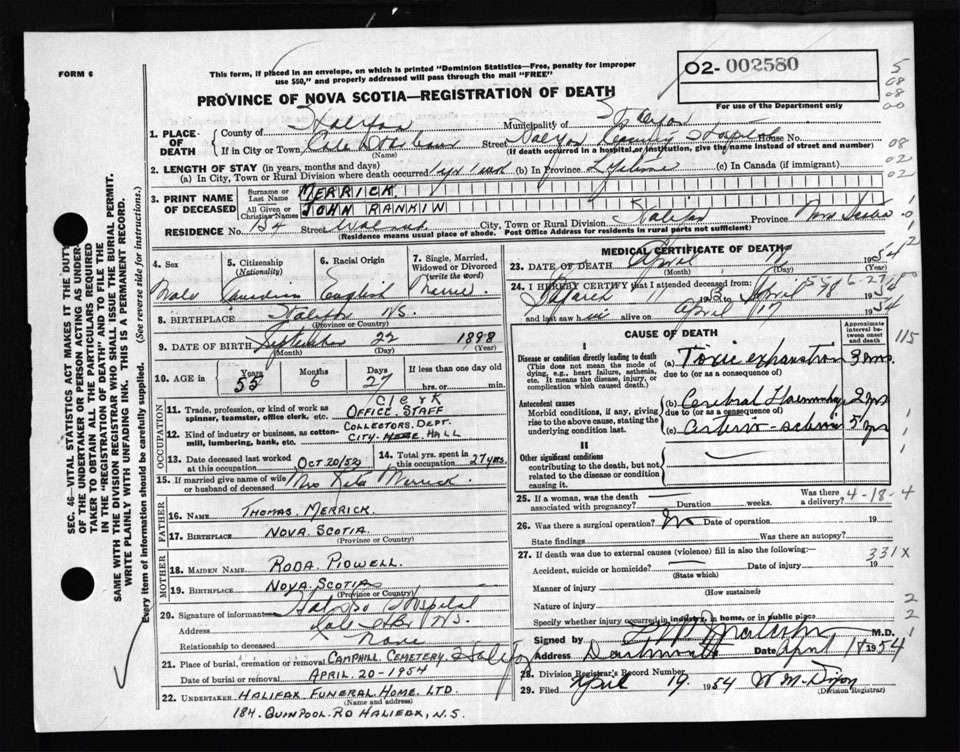 FORM 6
This form, if placed in an envelope, on which is printed "Dominion Statistics—Free, penalty for improper
use $50," and properly addressed will pass through the mail "FREE"
O2- 002580
For use of the Department only
PROVINCE OF NOVA SCOTIA—REGISTRATION OF DEATH
1. PLACE OF DEATH
County of Halifax Municipality of Halifax
If in City or Town Cole Harbour Street Halifax County Hospital House No.
(Name) (If death occurred in a hospital or institution, give the name instead of street and number)
2. LENGTH OF STAY (in years, months and days)
(a) In City, Town or Rural Division where death occurred 1 yr (b) In Province Lifetime (c) In Canada (if immigrant)
3. PRINT NAME OF DECEASED
Surname or Last Name MERRICK
All Given or Christian Names JOHN RANKIN
RESIDENCE No. 134 Street City, Town or Rural Division Halifax Province Nova Scotia
(Residence means usual place of abode. Post Office Address for residents in rural parts not sufficient)
4. Sex
Male
5. Citizenship (Nationality)
Canadian
6. Racial Origin
English
7. Single, Married, Widowed or Divorced (write the word)
Married
8. BIRTHPLACE Halifax N.S.
(Province or Country)
9. DATE OF BIRTH September 22 1898
(Month) (Day) (Year)
10. AGE in Years 55 Months 6 Days 27 If less than one day old
hrs. or min.
OCCUPATION
11. Trade, profession, or kind of work as spinner, teamster, office clerk, etc. CLERK OFFICE STAFF
12. Kind of industry or business, as cotton-mill, lumbering, bank, etc. COLLECTORS DEPT. CITY HALL
13. Date deceased last worked at this occupation OCT 20/52
14. Total yrs. spent in this occupation 27 yrs.
15. If married give name of wife or husband of deceased Mrs Merrick
FATHER
16. NAME THOMAS MERRICK
17. BIRTHPLACE NOVA SCOTIA
(Province or Country)
MOTHER
18. MAIDEN NAME RODA PIDWELL
19. BIRTHPLACE NOVA SCOTIA
(Province or Country)
20. Signature of informant Hospital
Address Cole Hbr N.S.
Relationship to deceased None
21. Place of burial, cremation or removal CAMPHILL CEMETERY Halifax
Date of burial or removal APRIL 20-1954
22. UNDERTAKER HALIFAX FUNERAL HOME LTD.
(Name and address)
184 QUINPOOL RD HALIFAX, N.S.
MEDICAL CERTIFICATE OF DEATH
23. DATE OF DEATH April 1954
(Month) (Day) (Year)
24. I HEREBY CERTIFY that I attended deceased from:
March 11 1953 to April 1954
and last saw him alive on April 17 1954
CAUSE OF DEATH
Approximate interval between onset and death
I
Disease or condition directly leading to death
(This does not mean the mode of dying, e.g., heart failure, asthenia, etc. It means the disease, injury, or complication which caused death.)
(a) Toxic exhaustion 3 mos.
due to (or as a consequence of)
Antecedent causes
Morbid conditions, if any, giving rise to the above cause, stating the underlying condition last.
(b) Cerebral Haemorrhage 2 yrs
due to (or as a consequence of)
(c) Arterio-sclerosis 5 yrs
II
Other significant conditions
contributing to the death, but not related to the disease or condition causing it.
25. If a woman, was the death associated with pregnancy? Duration weeks. Was there a delivery?
4-18-4
26. Was there a surgical operation? No Date of operation 19
State findings Was there an autopsy?
27. If death was due to external causes (violence) fill in also the following:
331X
Accident, suicide or homicide? Date of injury 19
(State which)
Manner of injury
(How sustained)
Nature of injury
Specify whether injury occurred in industry, in home, or in public place
Signed by Malcolm M.D.
Address Dartmouth Date April 19 1954
28. Division Registrar's Record Number
29. Filed April 19 1954 W M Dixon
(Division Registrar)
SEC. 46—VITAL STATISTICS ACT MAKES IT THE DUTY
OF THE UNDERTAKER OR PERSON ACTING AS UNDER-
TAKER TO OBTAIN ALL THE PARTICULARS REQUIRED
IN THE "REGISTRATION OF DEATH" AND TO FILE THE
SAME WITH THE DIVISION REGISTRAR WHO SHALL ISSUE THE BURIAL PERMIT.
WRITE PLAINLY WITH UNFADING INK. THIS IS A PERMANENT RECORD.
Every item of information should be carefully supplied. (See reverse side for instructions.)